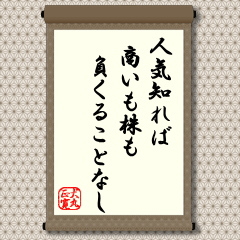 人気知れば
商いも株も
負くることなし
大丸
正寛